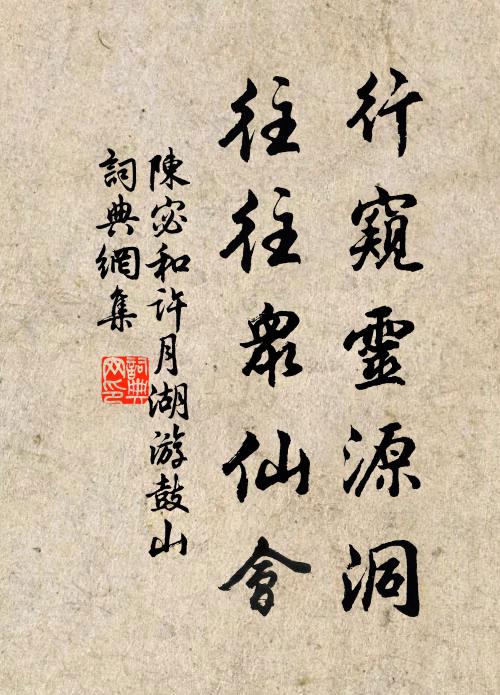 行窺靈源洞
往往眾仙會
陳宓和許月湖游鼓山
詞典網集
詞典网印